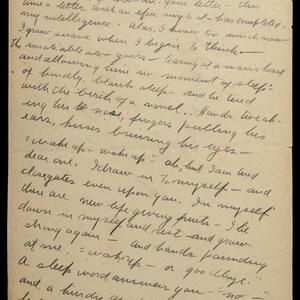 letter - this
time a letter with an
completed
my intelligence. Alas, I know too much now
I grew aware when I began to think -
the insatiable - yours - tearing at a man's beard
and allowing him no moment of sleep -
of kindly, blank sleep - and he tired
with the birth of a novel... Hands tweak-
ing his nose, fingers pulling his
ears, kisses bruising his eyes -
"wake up - wake up" - ah, but I am tired
dear one. I draw in to myself - and
even upon you. In myself
there are new life giving fruits - I lie
down in myself and rest - and grow
strong again - and hands pounding
at me, "wake up - or goodbye."
a sleep word answers you - "no -
and a